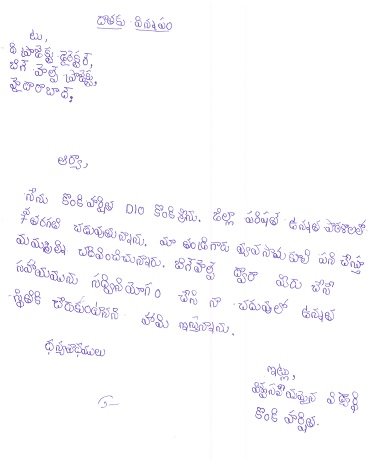 దాతకు విన్నపం
టు,
ది ప్రాజెక్టు డైరెక్టర్,
బిగ్ హెల్ప్ ప్రాజెక్టు,
హైదరాబాద్,
ఆర్యా,
నేను కొంకి హర్షిత D/O కొంకి శ్రీను. జిల్లా పరిషత్ ఉన్నత పాఠశాలలో
7వ తరగతి చదువుతున్నాను. మా తండ్రిగారు వ్యవసాయ కూలి పని చేస్తూ
మమ్మల్ని చదివించుచున్నారు. బిగ్‌హెల్ప్ ద్వారా మీరు చేసే
సహాయమును సద్వినియోగం చేసి నా చదువులో ఉన్నత
స్థితికి చేరుకుంటానని హామి ఇస్తున్నాను.
ధన్యవాదములు
ఇట్లు,
విశ్వసనీయమైన విద్యార్థి
కొంకి హర్షిత.